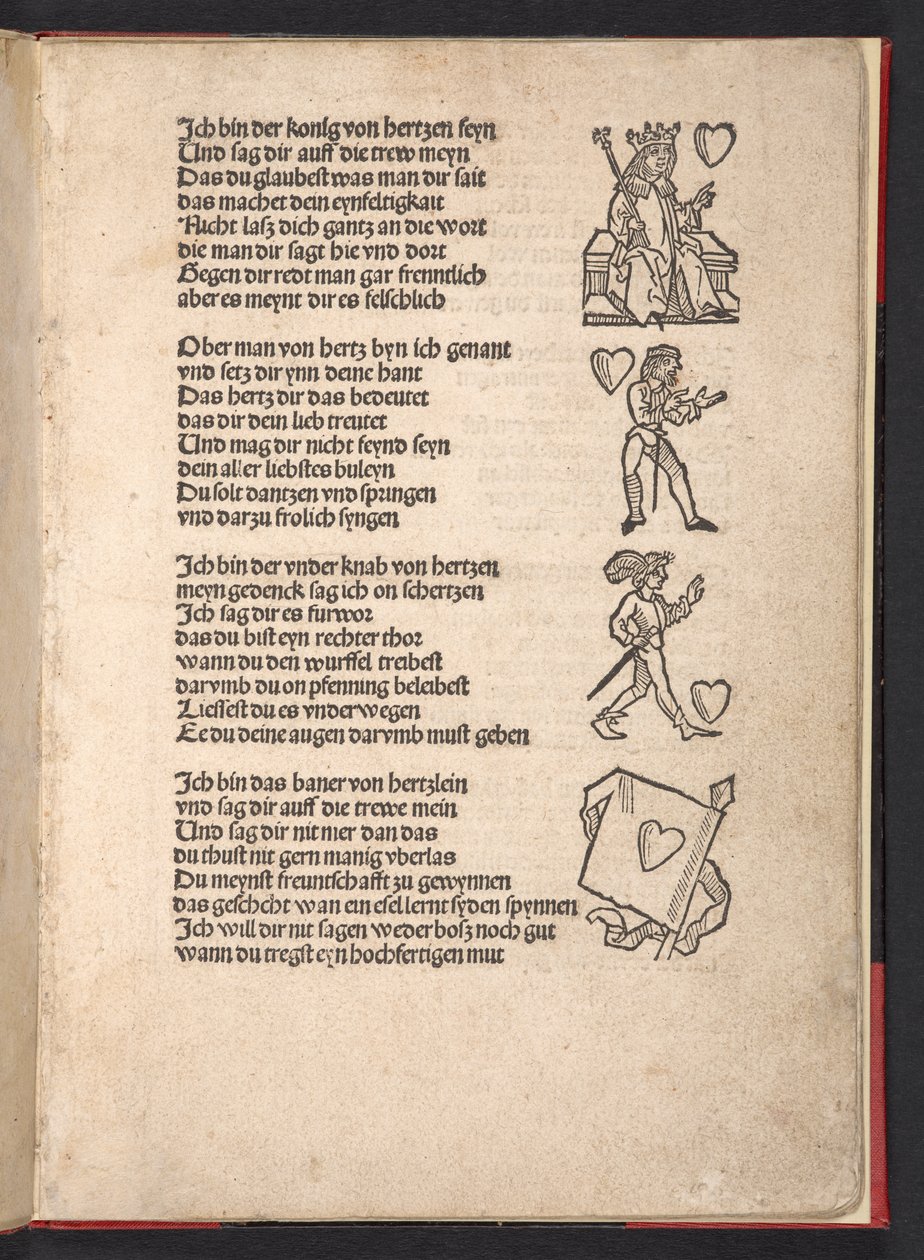 Ich bin der konig von hertzen seyn
Und sag dir auff die trew meyn
Das du glaubest was man dir sait
das machet dein eynfeltigkait
Nicht lasz dich gantz an die wort
die man dir sagt hie vnd dort
Gegen dir redt man gar frenntlich
aber es meynt dir es felschlich
Ober man von hertz byn ich genant
vnd setz dir ynn deine hant
Das hertz dir das bedeutet
das dir dein lieb treutet
Und mag dir nicht feynd seyn
dein aller liebstes buleyn
Du solt dantzen vnd springen
vnd darzu frolich syngen
Ich bin der vnder knab von hertzen
meyn gedenck sag ich on schertzen
Ich sag dir es furwor
das du bist eyn rechter thor
wann du den wurffel treibest
darvmb du on pfenning beleibest
Liessest du es vnderwegen
Ee du deine augen darvmb must geben
Ich bin das baner von hertzlein
vnd sag dir auff die trewe mein
Und sag dir nit mer dan das
du thust nit gern manig vberlas
Du meynst freuntschafft zu gewynnen
das geschcht wan ein esel lernt syden spynnen
Ich will dir nit sagen weder bosz noch gut
wann du tregst eyn hochfertigen mut